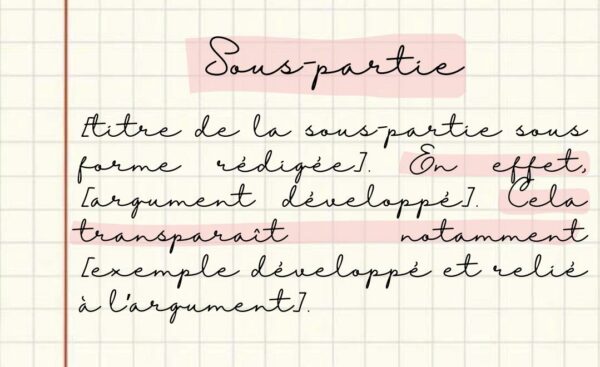 Sous-partie
[titre de la sous-partie sous
forme rédigée]. En effet,
[argument développé]. Cela
transparaît notamment
[exemple développé et relié
à l'argument].